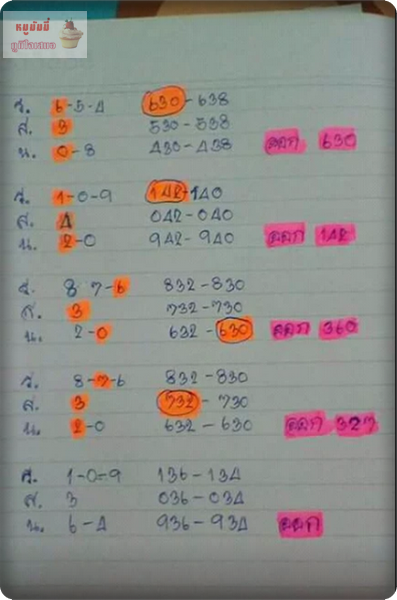 หมูมัมมี่
ภูมิโอเสถง
ร. 6-5-4 630-638
ส. 3 530-538
น. 0-8 430-438 ออก 630
ร. 1-0-9 142-140
ส. 4 042-040
น. 2-0 942-940 ออก 142
ร. 8-7-6 832-830
ส. 3 732-730
น. 2-0 632-630 ออก 360
ร. 8-7-6 832-830
ส. 3 732-730
น. 2-0 632-630 ออก 327
ร. 1-0-9 136-134
ส. 3 036-034
น. 6-4 936-934 ออก